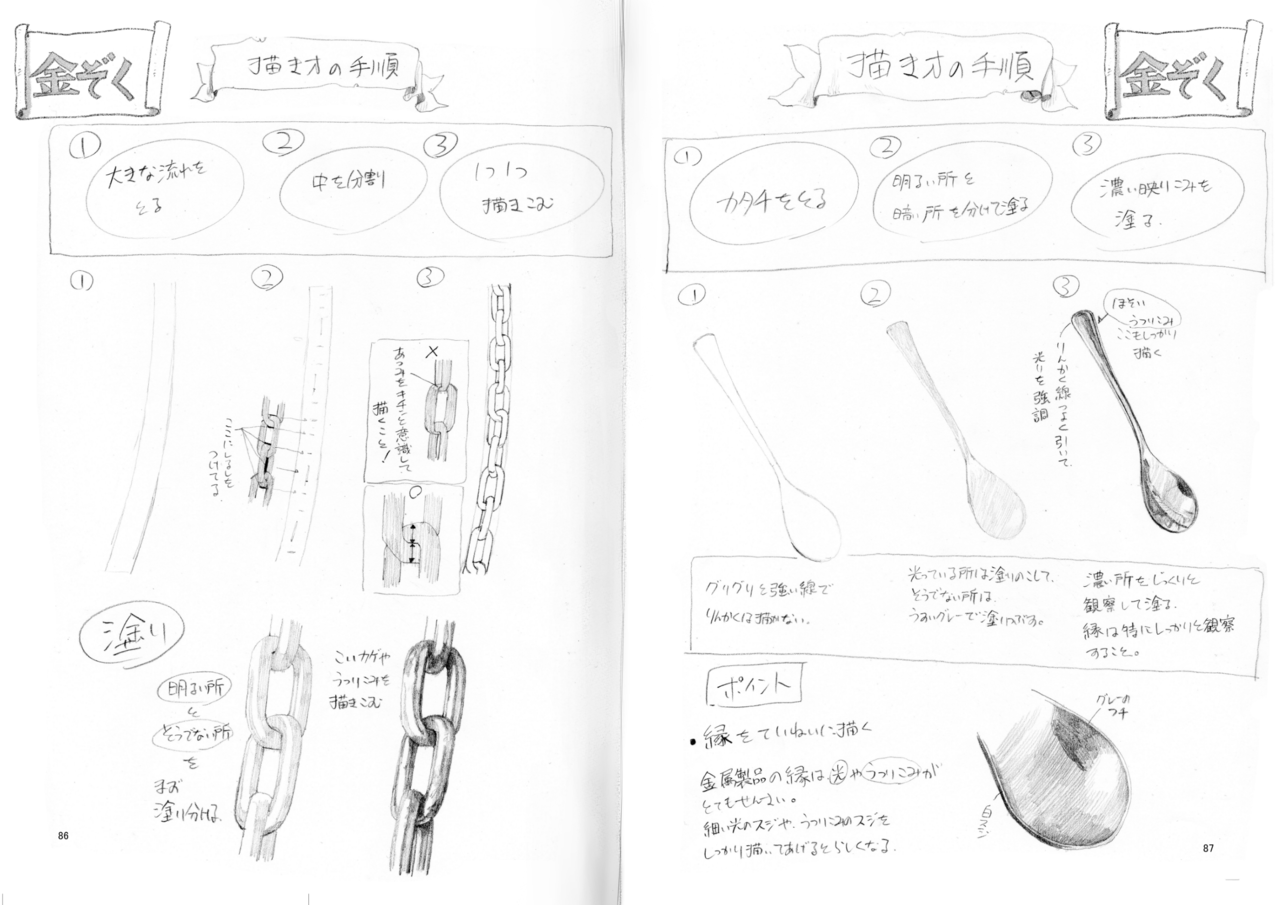 金ぞく
描き方の手順
①
大きな流れを
とる
②
中を分割
③
1つ1つ
描きこむ
①
②
③
ここにしるしを
つけてる
×
あつみをキチンと意識して
描くこと!
○
塗り
明るい所
と
そうでない所
を
まず
塗り分ける
こいカゲや
うつりこみを
描きこむ
86
描き方の手順
金ぞく
①
カタチをとる
②
明るい所と
暗い所を分けて塗る
③
濃い映りこみを
塗る.
①
②
③
ほそい
うつりこみ
ここもしっかり
描く
りんかく線つよく引いて
光りを強調
グリグリと強い線で
りんかくは描かない。
光っている所は塗りのこして、
そうでない所は、
うすいグレーで塗りつぶす。
濃い所をじっくりと
観察して塗る.
縁は特にしっかりと観察
すること。
ポイント
・縁をていねいに描く
金属製品の縁は光やうつりこみが
とてもせんさい。
細い光のスジや、うつりこみのスジを
しっかり描いてあげるとらしくなる.
グレーの
フチ
白スジ
87